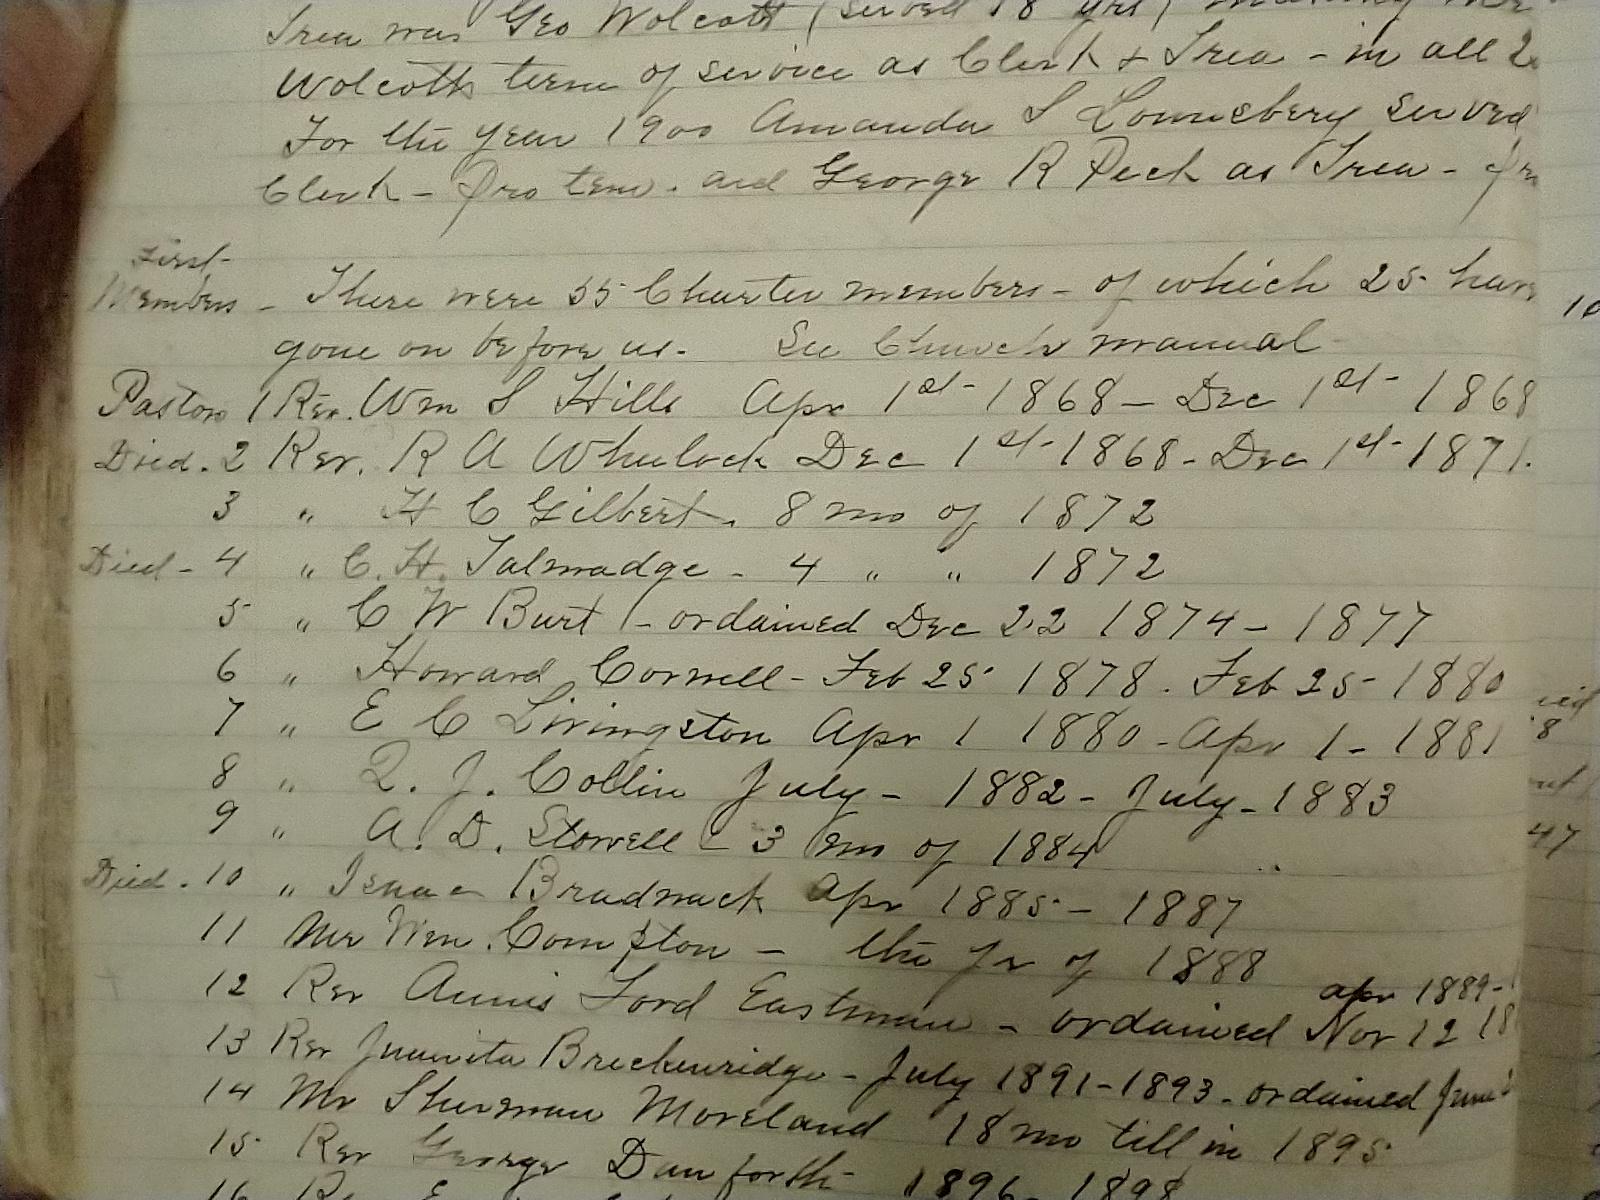 Trea was Geo Wolcott (served 18 yrs) making Mr
Wolcotts term of service as Clerk & Trea - in all
For the year 1900 Amanda S Lounsbery served
Clerk - pro tem. and George R Peck as Trea -
First-
Members - There were 55 Charter members - of which 25 have
gone on before us. See Church manual
Pastors 1 Rev. Wm S Hills Apr 1st - 1868 - Dec 1st - 1868
Died. 2 Rev. R A Wheelock Dec 1st - 1868 - Dec 1st - 1871.
3 " H C Gilbert. 8 mo of 1872
Died - 4 " C. H. Talmadge - 4 " " 1872
5 " C W Burt - ordained Dec 22 1874 - 1877
6 " Howard Cornell - Feb 25 1878. Feb 25 - 1880
7 " E C Livingston Apr 1 1880 - Apr 1 - 1881
8 " Q. J. Collin July - 1882 - July - 1883
9 " A. D. Stowell - 3 mo of 1884
Died. 10 " Isaac Bradnack Apr 1885 - 1887
11 Mr Wm. Compton - the yr of 1888
apr 1889 -
12 Rev Annis Ford Eastman - ordained Nov 12 18
13 Rev Juanita Breckenridge - July 1891 - 1893 - ordained June
14 Mr Sherman Moreland 18 mo till in 1895
15 Rev George Danforth - 1896 - 1898
16